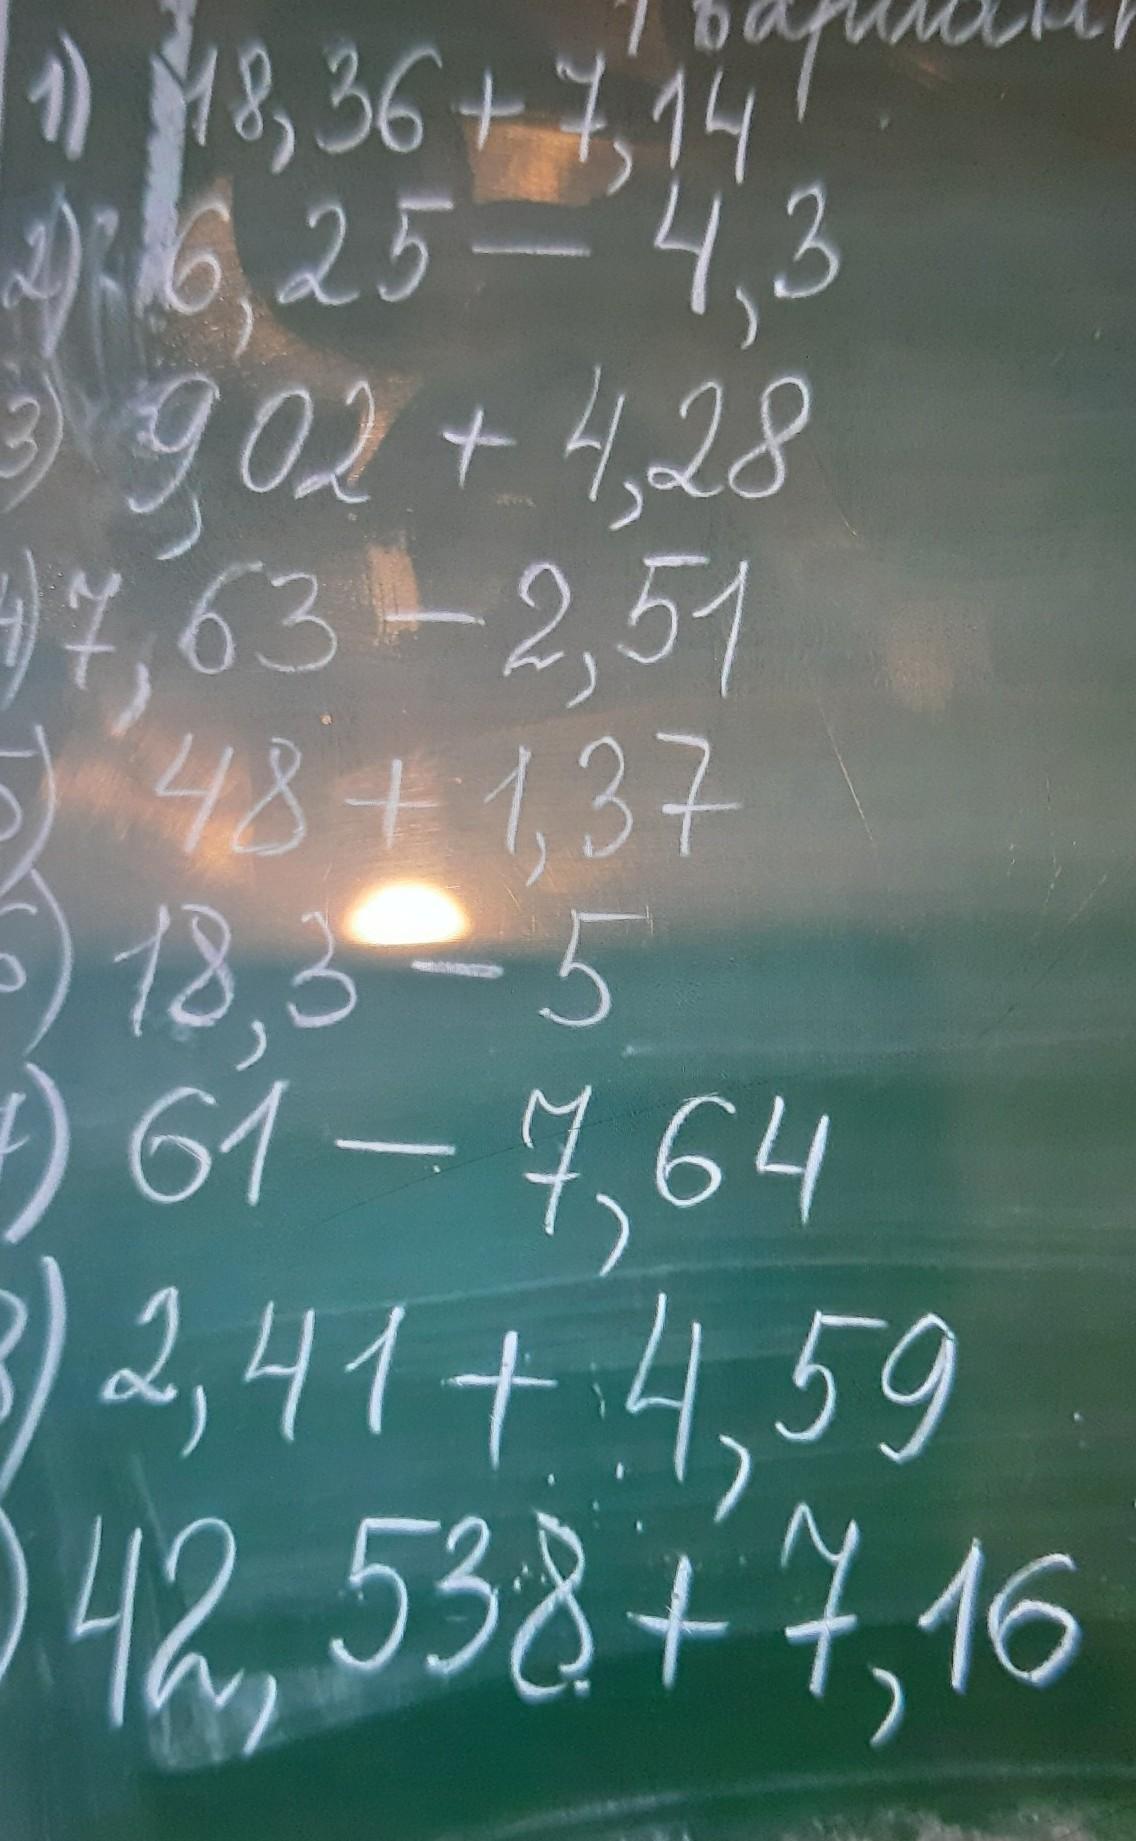 1 вариант
1) 18,36 + 7,14
2) 6,25 - 4,3
3) 9,02 + 4,28
4) 7,63 - 2,51
5) 48 + 1,37
6) 18,3 - 5
7) 61 - 7,64
8) 2,41 + 4,59
) 42,538 + 7,16